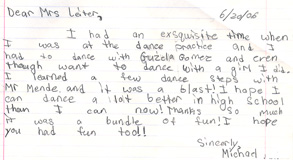 Dear Mrs Leiter,
6/20/06
I had an exsquisite time when
I was at the dance practice and I
had to dance with Guzela Gomez and even
though want to dance with a girl I did.
I learned a few dance steps with
Mr Mende and it was a blast! I hope I
can dance a lait better in high school
than I can now! Thanks so much
it was a bundle of fun! I hope
you had fun too!
Sincerly,
Michael